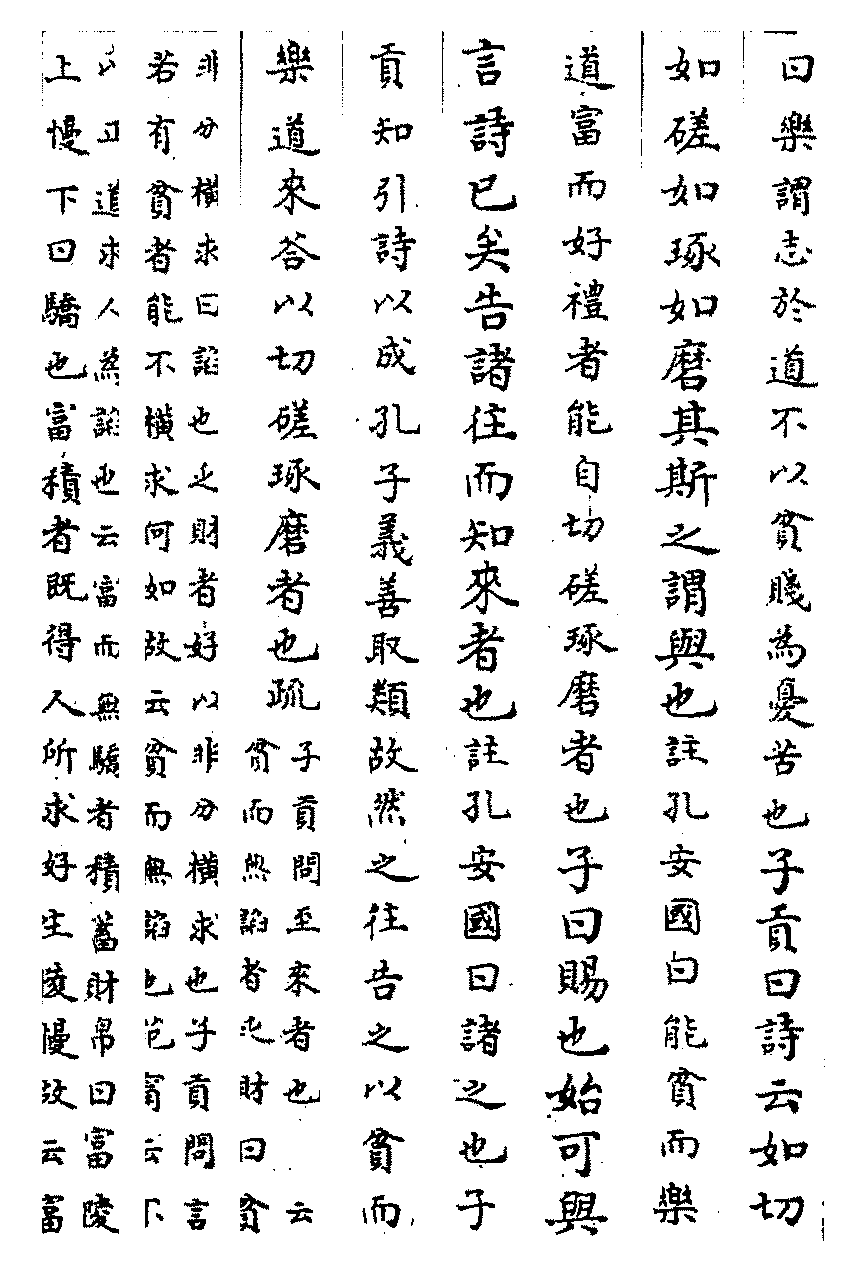 曰樂謂志於道不以貧賤為憂苦也子貢曰詩云如切
如磋如琢如磨其斯之謂與也註孔安國曰能貧而樂
道富而好禮者能自切磋琢磨者也子曰賜也始可與
言詩已矣告諸往而知來者也註孔安國曰諸之也子
貢知引詩以成孔子義善取類故然之往告之以貧而
樂道來答以切磋琢磨者也疏
子貢問至來者也 云
貧而無諂者乏財曰貧
非分橫求曰諂也乏財者好以非分橫求也子貢問言
若有貧者能不橫求何如故云貧而無諂也范甯云不
以正道求人為諂也云富而無驕者積蓄財帛曰富陵
上慢下曰驕也富積者既得人所求好生陵慢故云富